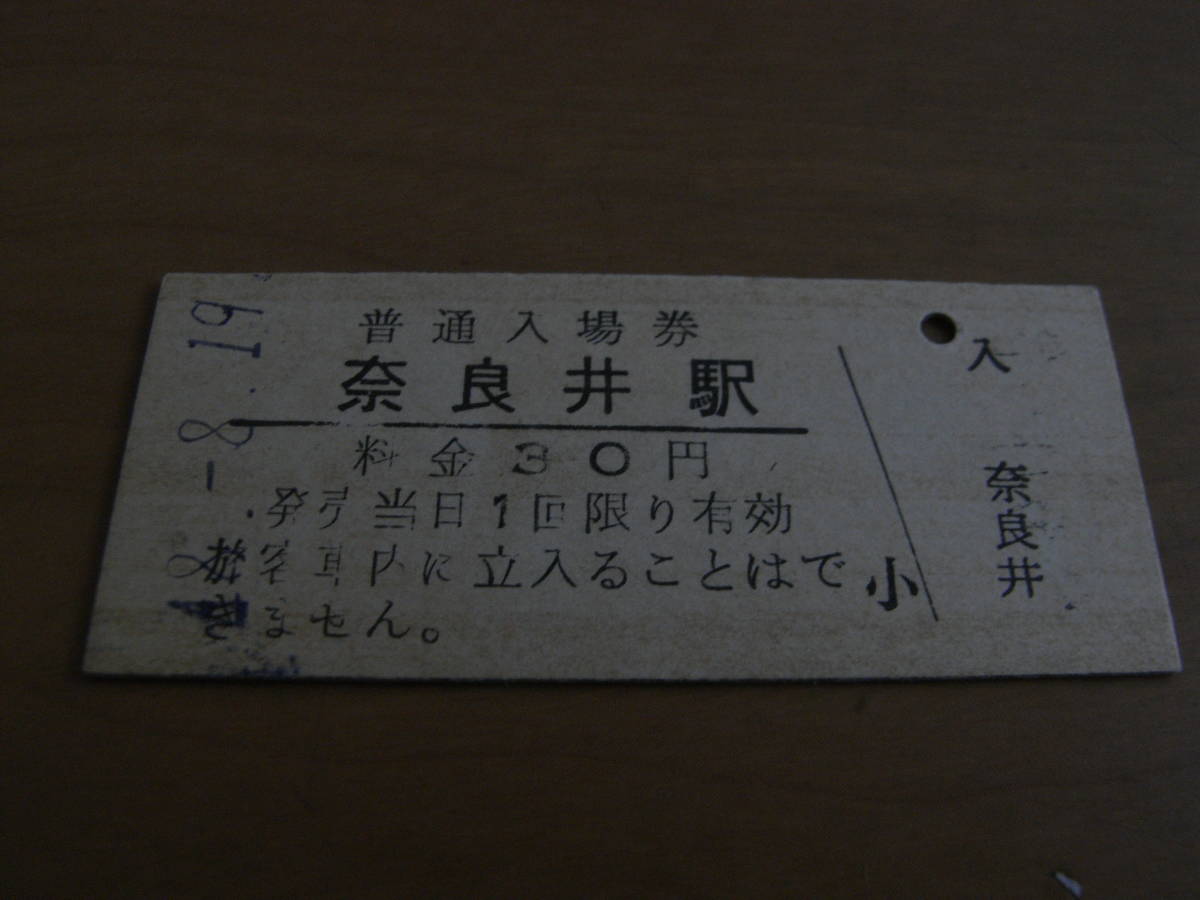 普通入場券
奈良井駅
料金30円
発売当日1回限り有効
旅客車内に立入ることはで
きません。
小
入
奈良井
-8.19